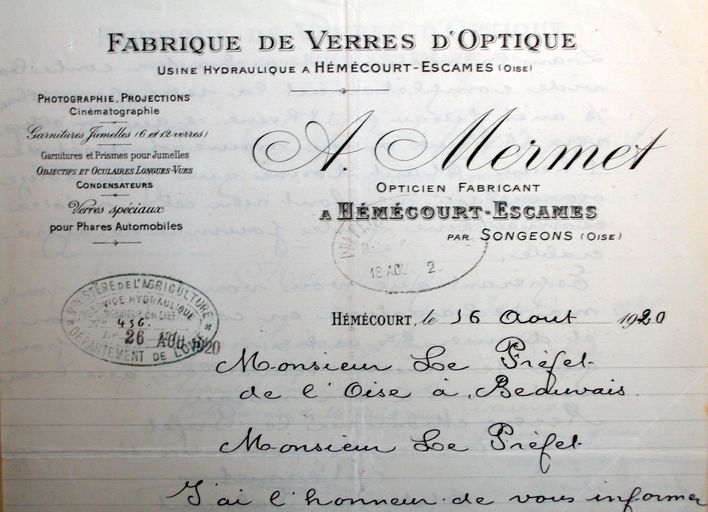 FABRIQUE DE VERRES D'OPTIQUE
USINE HYDRAULIQUE A HÉMÉCOURT-ESCAMES (OISE)
PHOTOGRAPHIE, PROJECTIONS
Cinématographie
Garnitures Jumelles (6 et 12 verres)
Garnitures et Prismes pour Jumelles
OBJECTIFS ET OCULAIRES LONGUES-VUES
CONDENSATEURS
Verres spéciaux
pour Phares Automobiles
A. Mermet
OPTICIEN FABRICANT
A HÉMÉCOURT-ESCAMES
PAR SONGEONS (OISE)
18 AOU 2
MINISTÈRE DE L'AGRICULTURE
SERVICE HYDRAULIQUE
INGÉNIEUR EN CHEF
436.
26 AOU 1920
DÉPARTEMENT DE L'OISE
HÉMÉCOURT, le 16 Aout 1920
Monsieur Le Préfet
de l'Oise à Beauvais.
Monsieur Le Préfet
J'ai l'honneur de vous informer